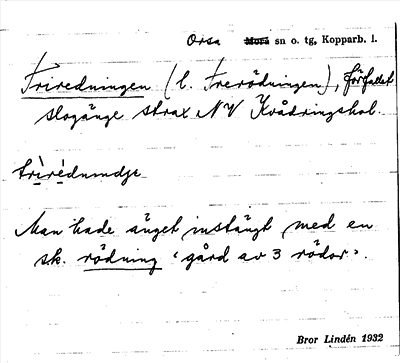 Orsa Mora sn o. tg, Kopparb. l.
Triredningen (l. Trerödningen), förfallet
slogänge strax NV Kvådringshol.
trìrèdnındje
Man hade änget instängt med en
sk. rödning 'gård av 3 rödor'.
Bror Lindén 1932